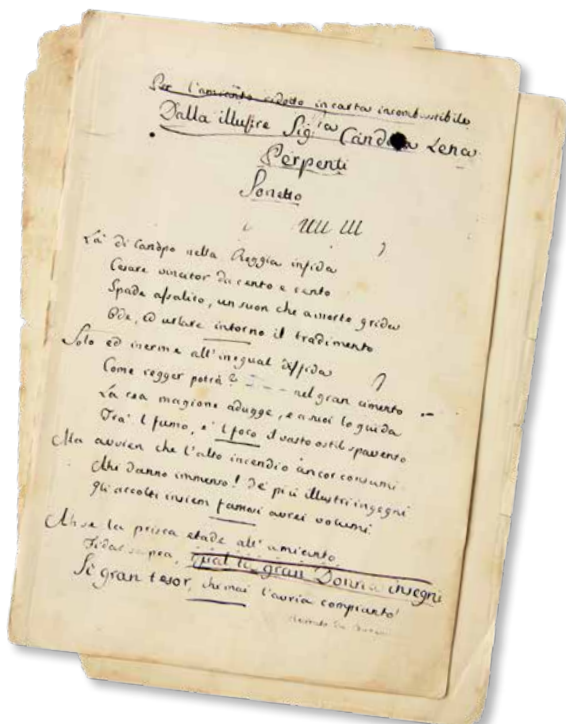 Per l'amianto ridotto in carta incombustibile
Dalla illustre Sig.ra Candida Lena
Perpenti
Sonetto
Là di Canopo nella Reggia infida
Cesare vincitor da cento e cento
Spade assalito, un suon che a morte grida
Ode, ed urlare intorno il tradimento
Solo ed inerme all'inegual disfida
Come regger potrà? nel gran cimento
La rea magione adugge, e a noi lo guida
Tra'l fumo, e'l foco, il vasto ostil spavento
Ma avvien che l'alto incendio ancor consumi
Ahi danno immenso! de' più illustri ingegni
Gli accolti insiem famosi aurei volumi
Ah se la prisca etade all'amianto
Fidar sapea, qual la gran Donna insegni
Sì gran tesor, chi mai l'avria compianto